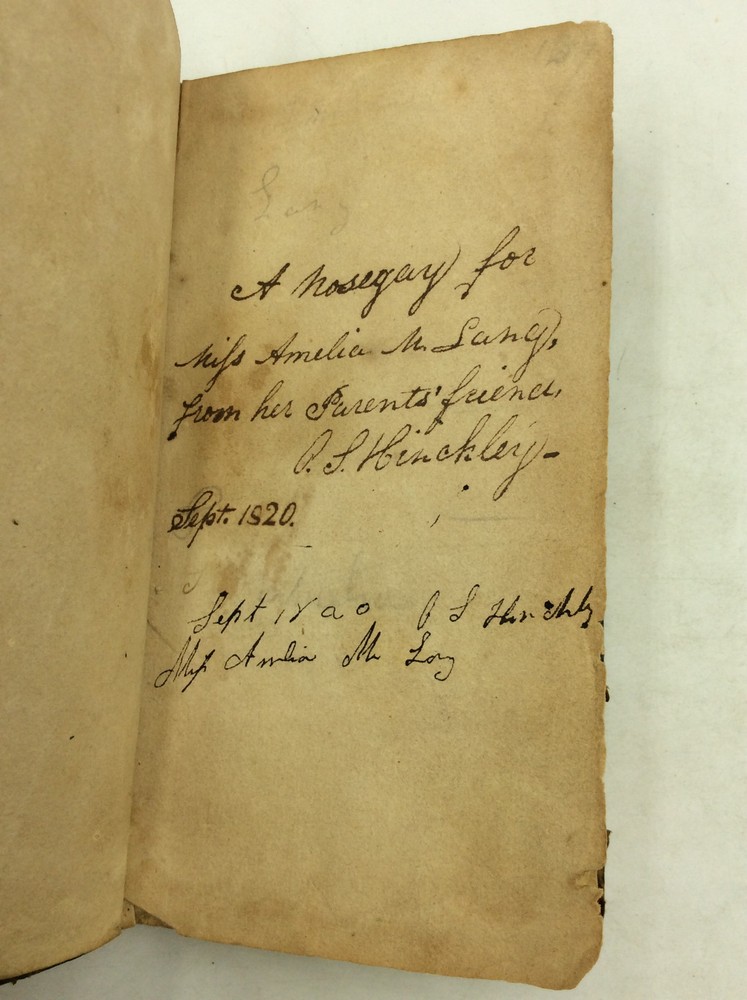 Lang
A Nosegay for
Miss Amelia M. Lang,
from her Parents' friend,
O. S. Hinckley-
Sept. 1820.
Sept 1820 O S Hinckley
Miss Amelia M Lang